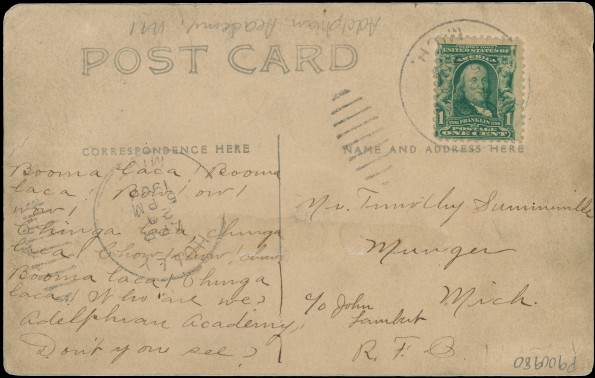 Adelphian Academy, MI
POST CARD
SERIES 1902
UNITED STATES OF AMERICA
1 FRANKLIN 1
POSTAGE
ONE CENT
CORRESPONDENCE HERE
Booma laca! Booma
laca! Bow! ow!
wow!
Chinga laca, chinga
laca! Chow! chow! chow!
Booma laca! Chinga
laca! Who are we?
Adelphian Academy,
Don't you see?
NAME AND ADDRESS HERE
Mr. Timothy
Munger
Mich.
c/o John
Lambert
R. F. D.
P900980